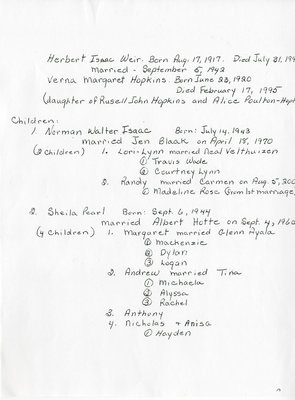 Herbert Isaac Weir. Born Aug. 17, 1917. Died July 31, 199
married - September 5, 1942
Verna Margaret Hopkins. Born June 23, 1920
Died February 17, 1995
(daughter of Russell John Hopkins and Alice Poulton-Hopk
Children:
1. Norman Walter Isaac Born: July 14, 1943
married Jen Blaak on April 18, 1970
(2 Children) 1. Lori-Lynn married Neal Velthuizen
① Travis Wade
② Courtney Lynn
2. Randy married Carmen on Aug. 5, 200
① Madeline Rose (from 1st marriage)
2. Sheila Pearl Born: Sept. 6, 1944
married Albert Hotte on Sept. 4, 1960
(4 Children) 1. Margaret married Glenn Ayala
① Mackenzie
② Dylan
③ Logan
2. Andrew married Tina
① Michaela
② Alyssa
③ Rachel
3. Anthony
4. Nicholas + Anisa
① Hayden